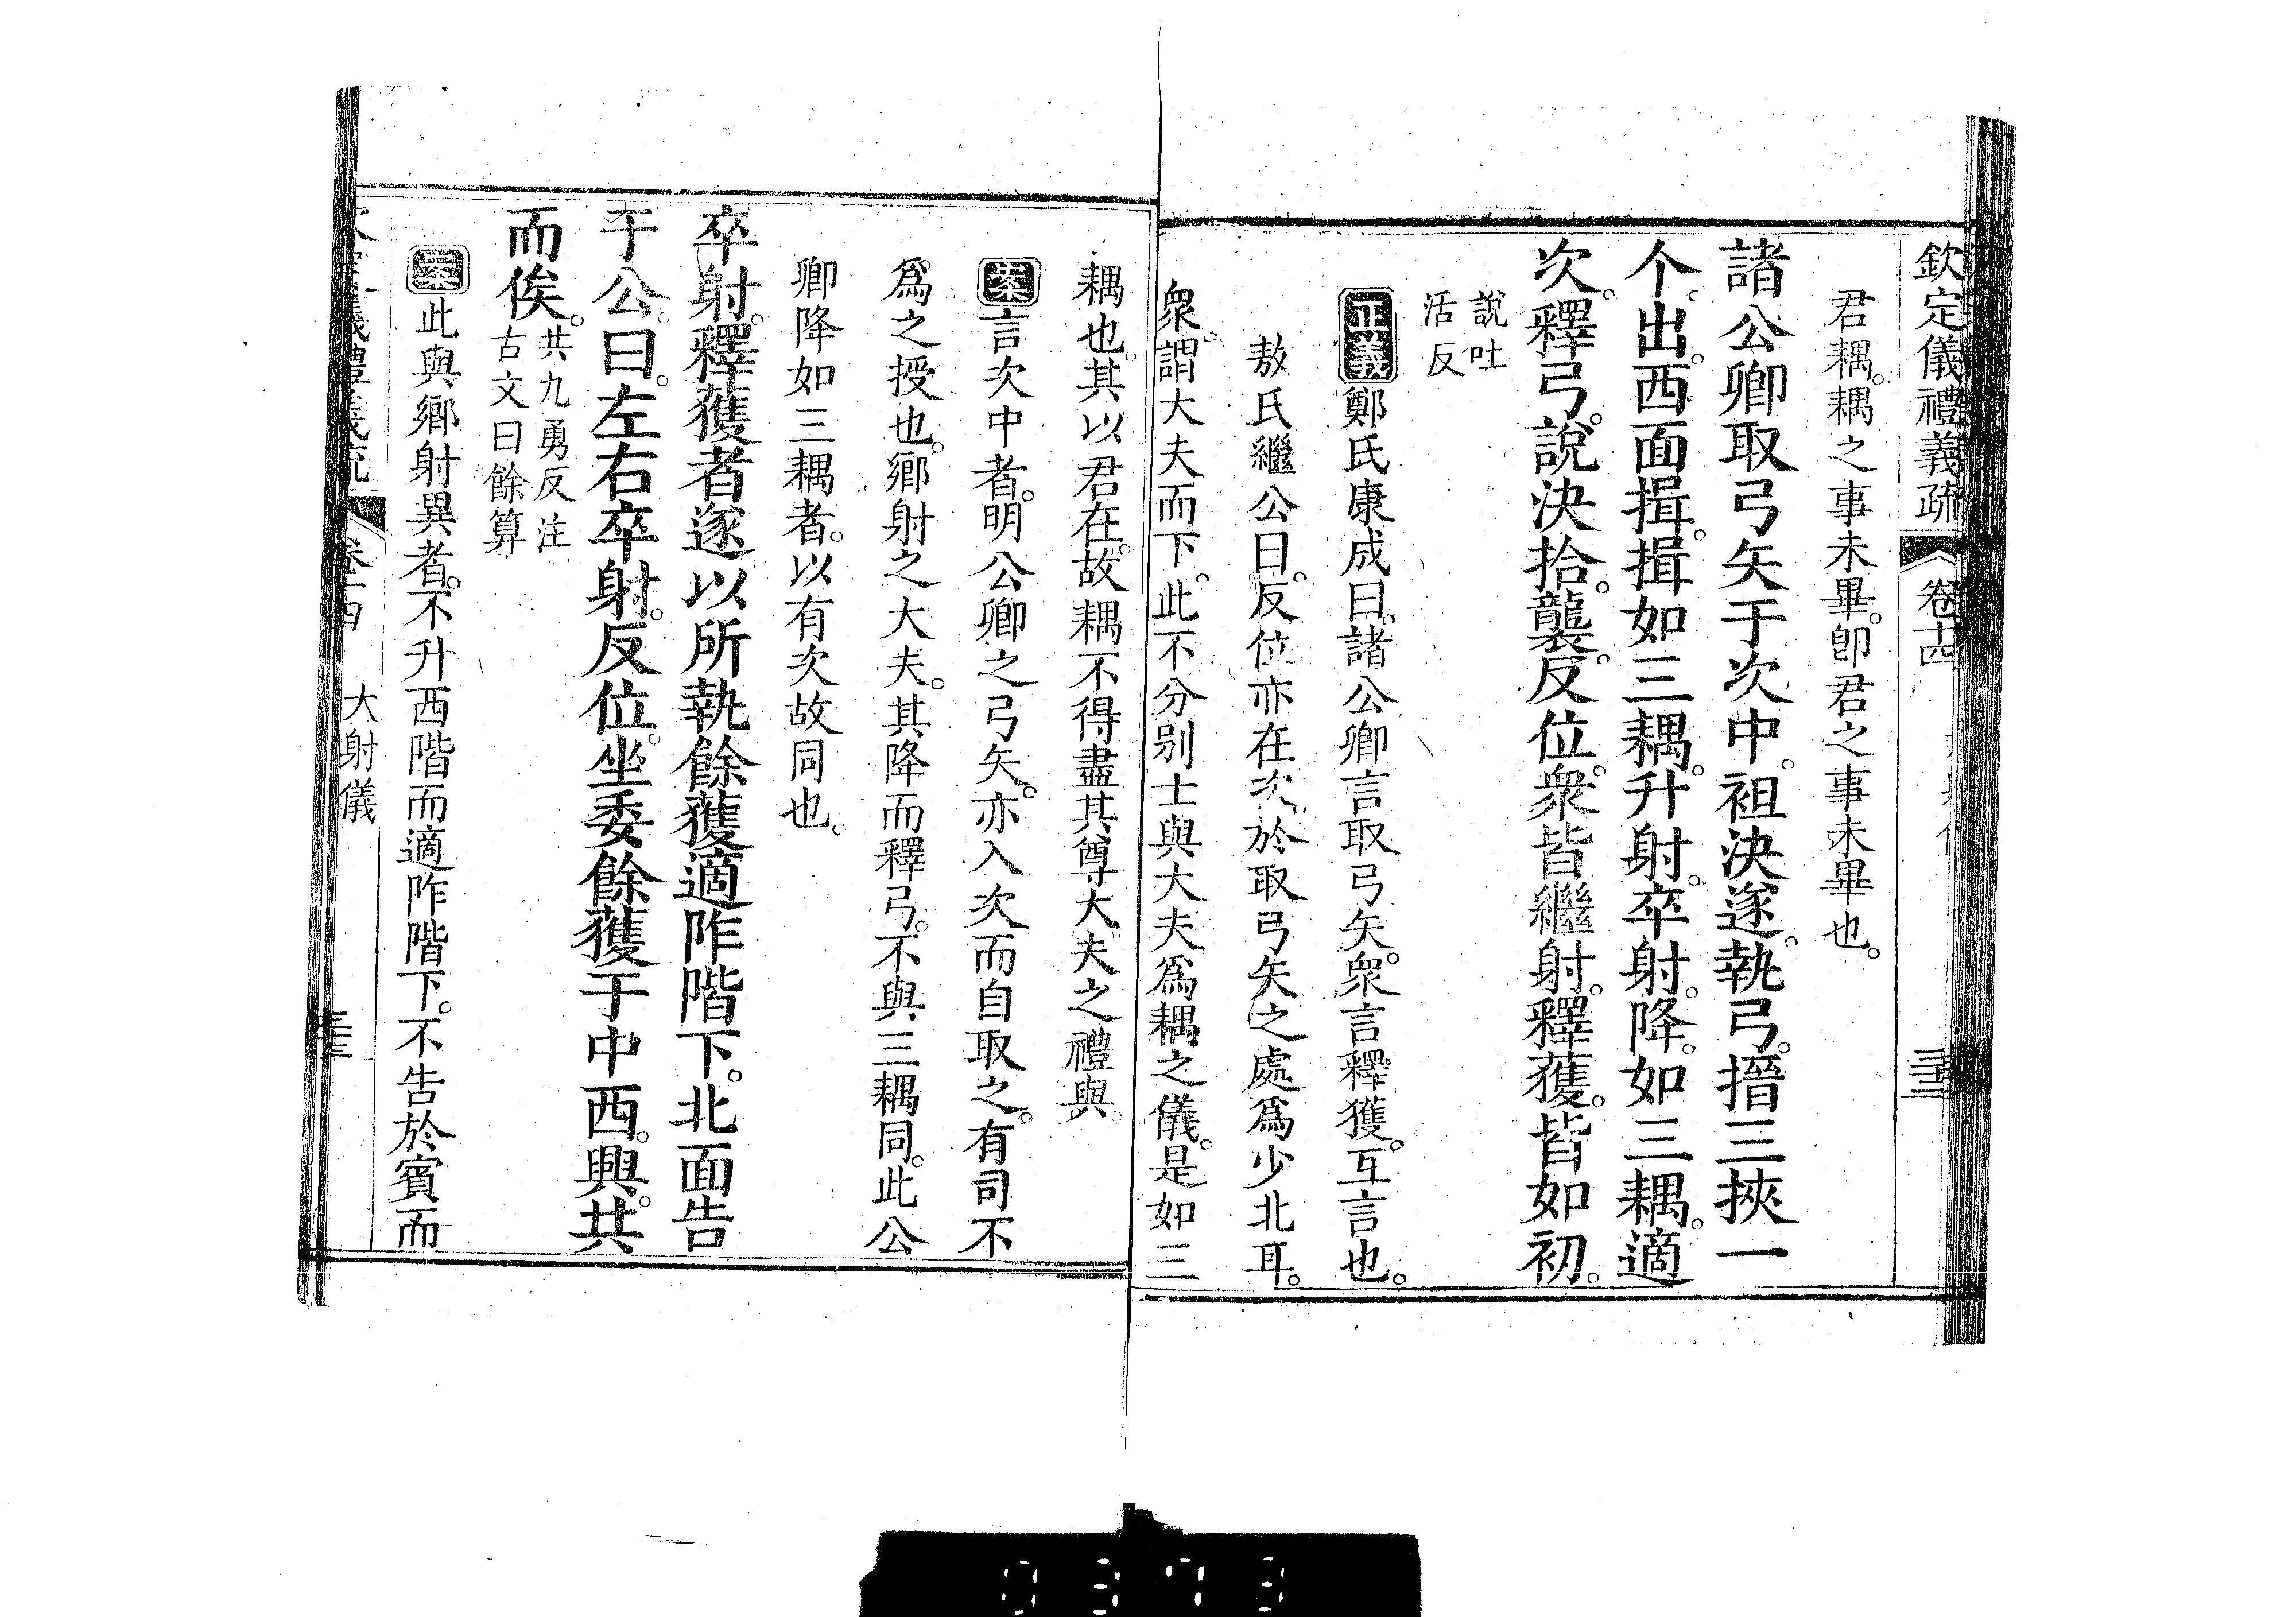 欽定儀禮義疏 卷十四
君耦。耦之事未畢。卽君之事未畢也。
諸公卿取弓矢于次中。袒決遂。執弓。搢三挾一
个。出。西面揖。揖如三耦。升射。卒射。降如三耦。適
次。釋弓。說決拾。襲。反位。衆皆繼射。釋獲。皆如初。
說吐
活反
正義鄭氏康成曰。諸公卿言取弓矢。衆言釋獲。互言也。
敖氏繼公曰。反位亦在次。於取弓矢之處爲少北耳。
衆。謂大夫而下。此不分別士與大夫爲耦之儀。是如三
耦也。其以君在。故耦不得盡其尊大夫之禮與
案言次中者。明公卿之弓矢。亦入次而自取之。有司不
爲之授也。鄉射之大夫。其降而釋弓。不與三耦同。此公
卿降如三耦者。以有次故同也。
卒射。釋獲者遂以所執餘獲適阼階下。北面告
于公。曰。左右卒射。反位。坐委餘獲于中西。興。共
而俟。共九勇反注
古文曰餘算
案此與鄉射異者。不升西階而適阼階下。不告於賓而
卷十四 大射儀